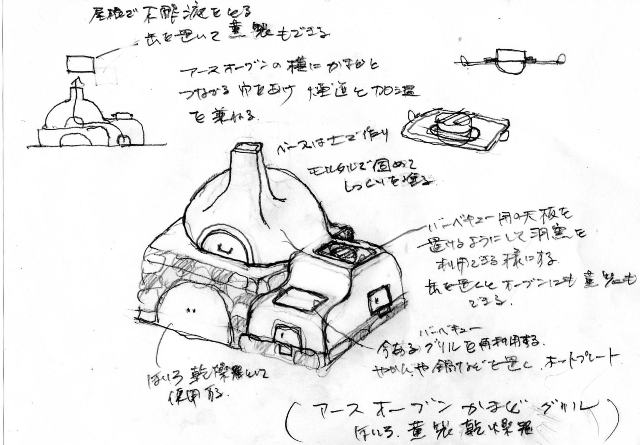 屋根で木酢液をとる
缶を置いて薫製もできる
アースオーブンの横にかまどと
つながる穴をあけ 煙道と加温
を兼ねる
ベースは土で作り
モルタルで固めて
しっくいを塗る
バーベキュー用の天板を
置けるようにして羽釜を
利用できる様にする
缶を置くとオーブンにも薫製も
できる.
バーベキュー
今あるグリルを再利用する.
やかんや鍋などを置く. ホットプレート
ほいろ乾燥器として
使用する
(アースオーブンかまどグリル)
ほいろ. 薫製乾燥器